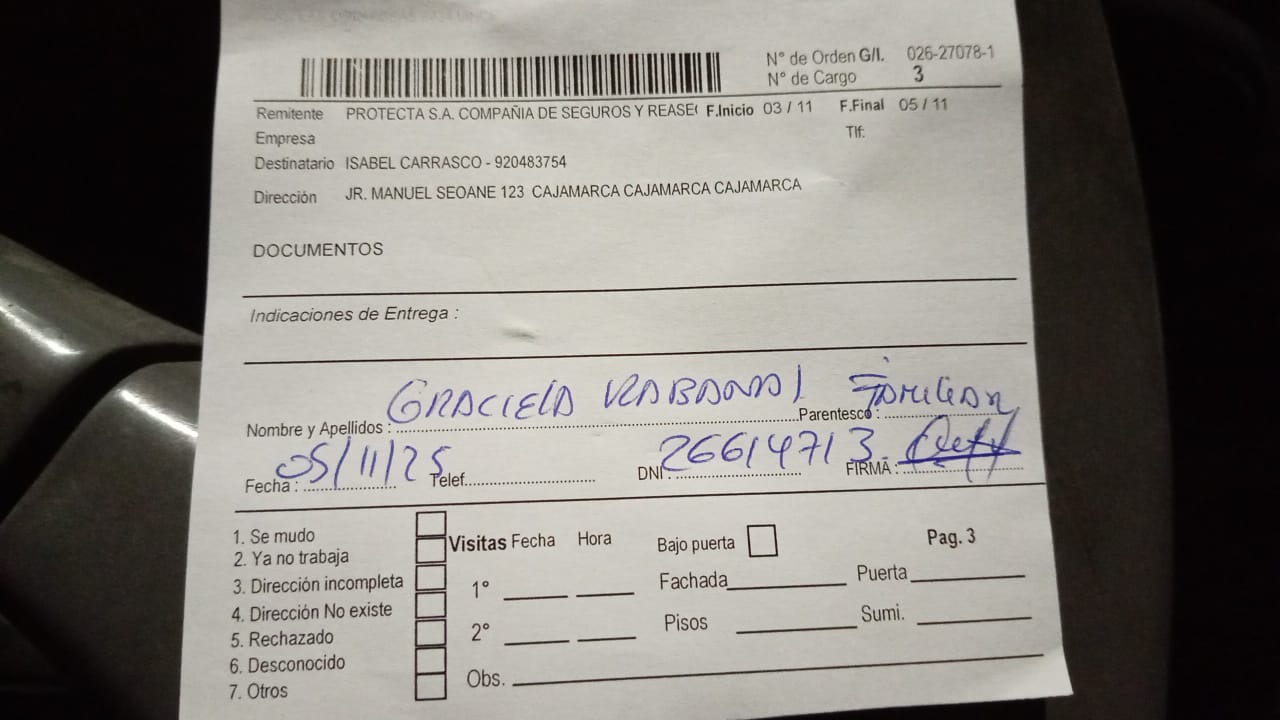 N° de Orden G/I. 026-27078-1
N° de Cargo 3
Remitente PROTECTA S.A. COMPAÑIA DE SEGUROS Y REASE F.Inicio 03 / 11 F.Final 05 / 11
Empresa Tlf:
Destinatario ISABEL CARRASCO - 920483754
Dirección JR. MANUEL SEOANE 123 CAJAMARCA CAJAMARCA CAJAMARCA
DOCUMENTOS
Indicaciones de Entrega :
Nombre y Apellidos : GRACIELA RABANAL Parentesco : FAMILIAR
Fecha : 05/11/25 Telef. DNI : 26614713 FIRMA :
1. Se mudo
2. Ya no trabaja
3. Dirección incompleta
4. Dirección No existe
5. Rechazado
6. Desconocido
7. Otros
Visitas Fecha Hora
1°
2°
Obs.
Bajo puerta Pag. 3
Fachada Puerta
Pisos Sumi.